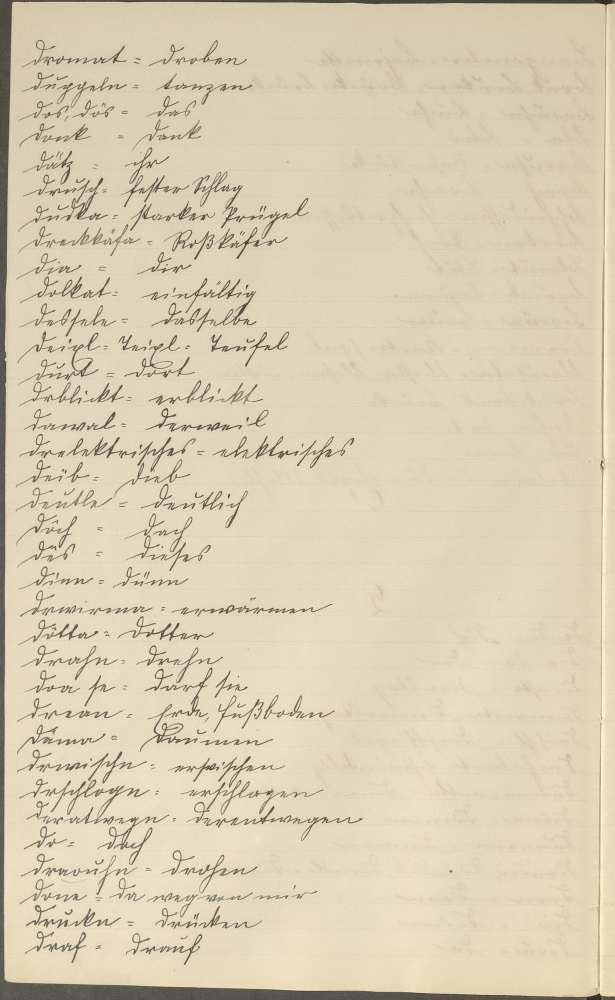 dromat = droben
duggeln = tanzen
dos, dös = das
donk = Dank
dätz = ihr
drusch = fester Schlag
dudka = starker Prügel
dreckkäfa = Roßkäfer
dia = dir
dolkat = einfältig
dessele = dasselbe
deixl = Teixl = Teufel
durt = dort
drblickt = erblickt
dawal = derweil
drelektrisches = elektrisches
deib = Dieb
deutle = deutlich
döch = Dach
dës = dieses
dinn = dünn
drwirma = erwärmen
dötta = Dotter
drahn = drehn
doa se = darf sie
drean = Erde, Fußboden
däma = Daumen
drwischn = erwischen
drschlogn = erschlagen
deratwegn = derentwegen
do = doch
draouhn = drohen
done = da weg von mir
druckn = drücken
draf = drauf